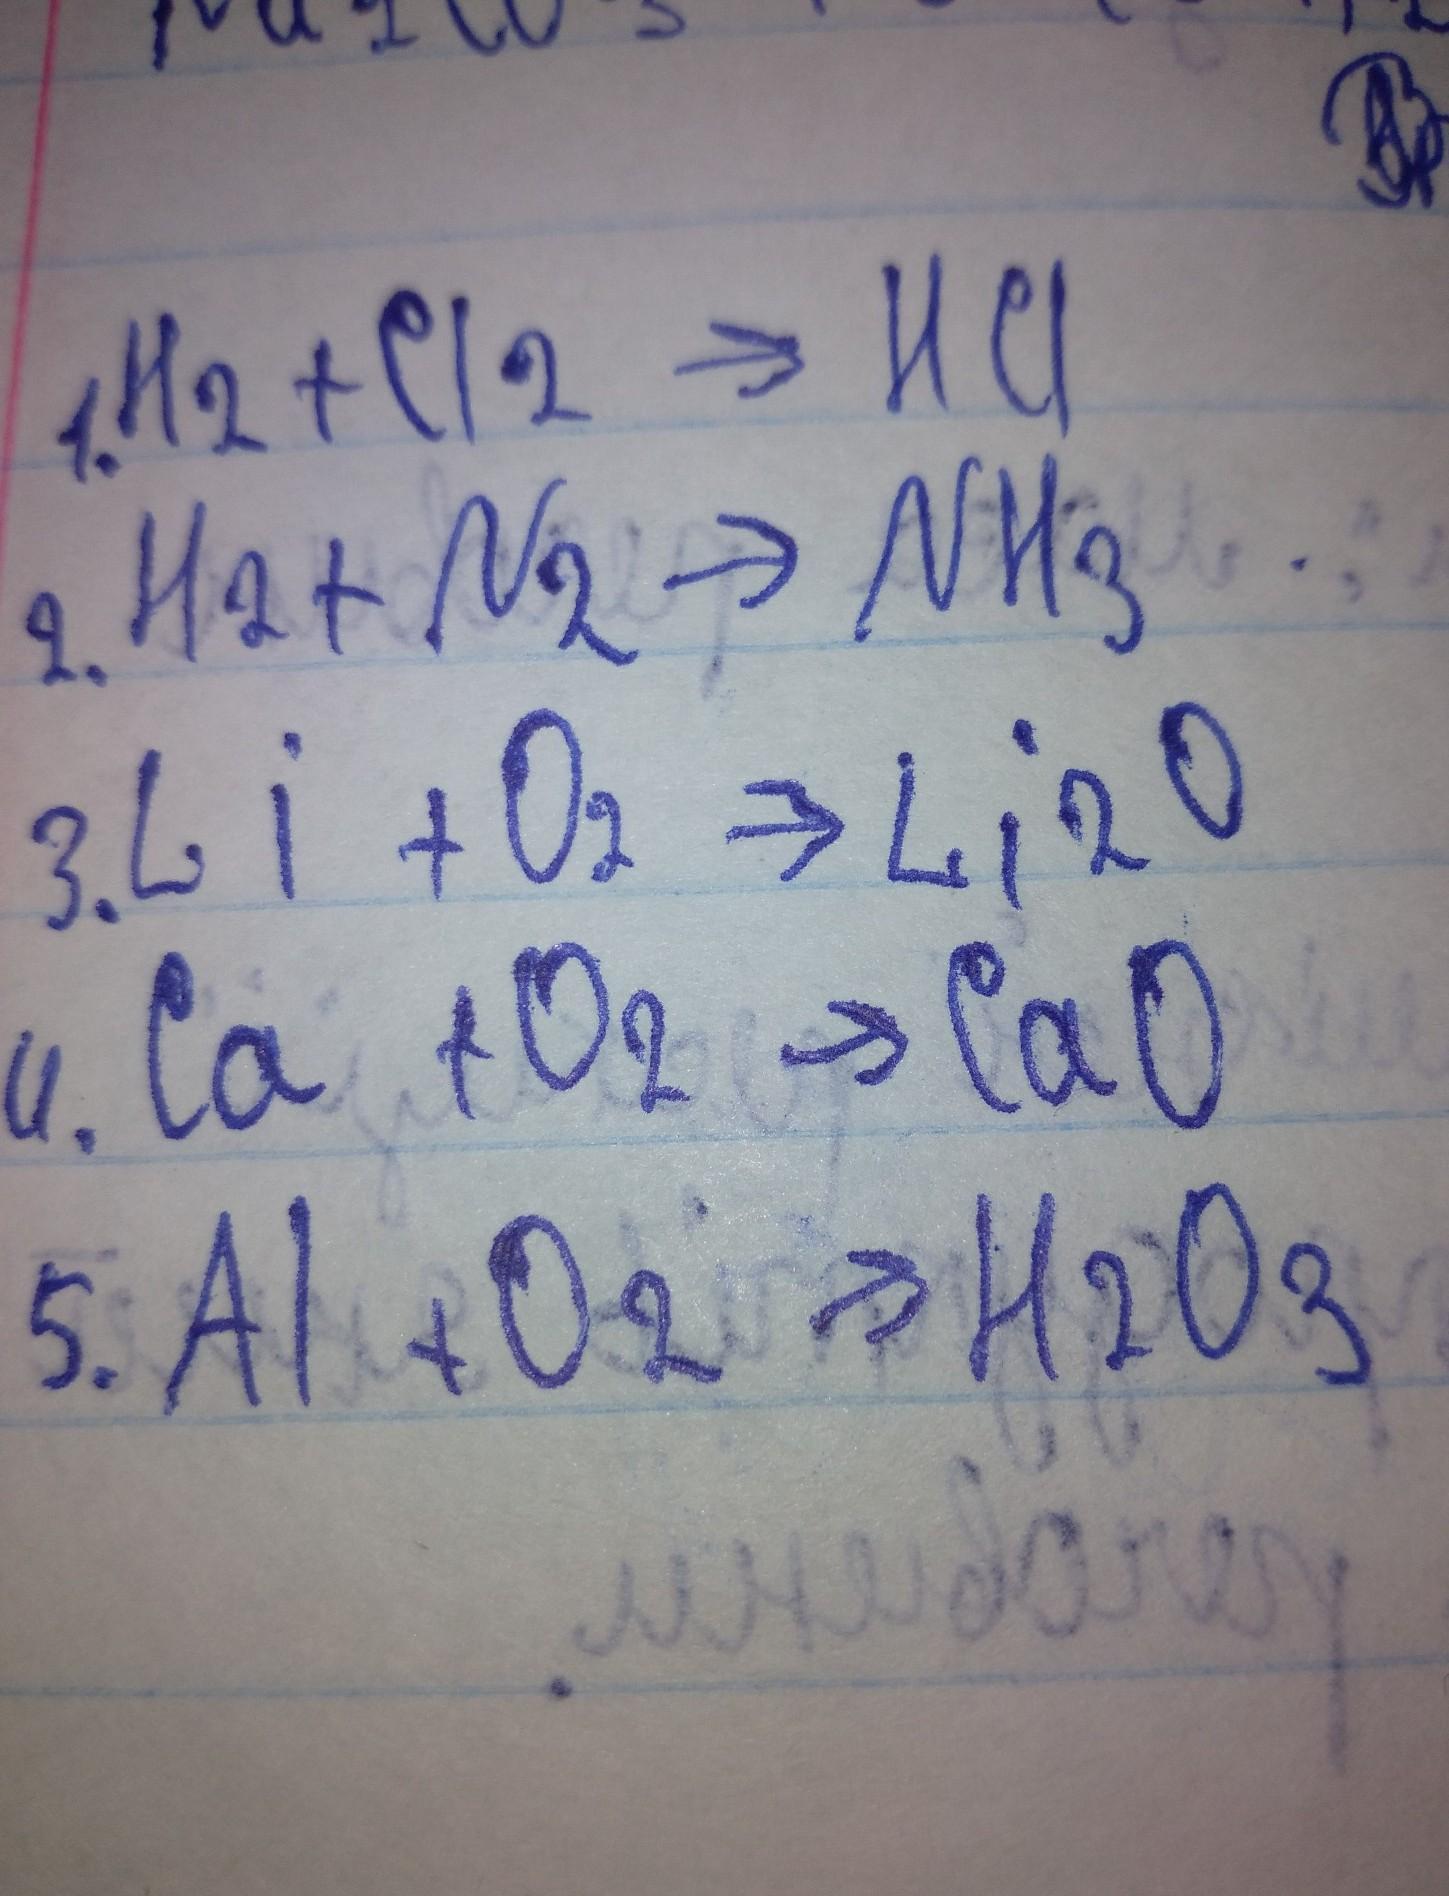 1. H2 + Cl2 → HCl
2. H2 + N2 → NH3
3. Li + O2 → Li2O
4. Ca + O2 → CaO
5. Al + O2 → H2O3